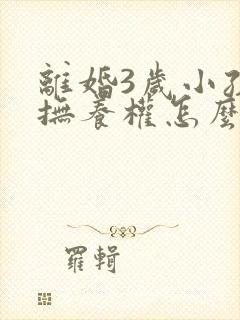 離婚3歲小孩
撫養權怎麼
羅輯